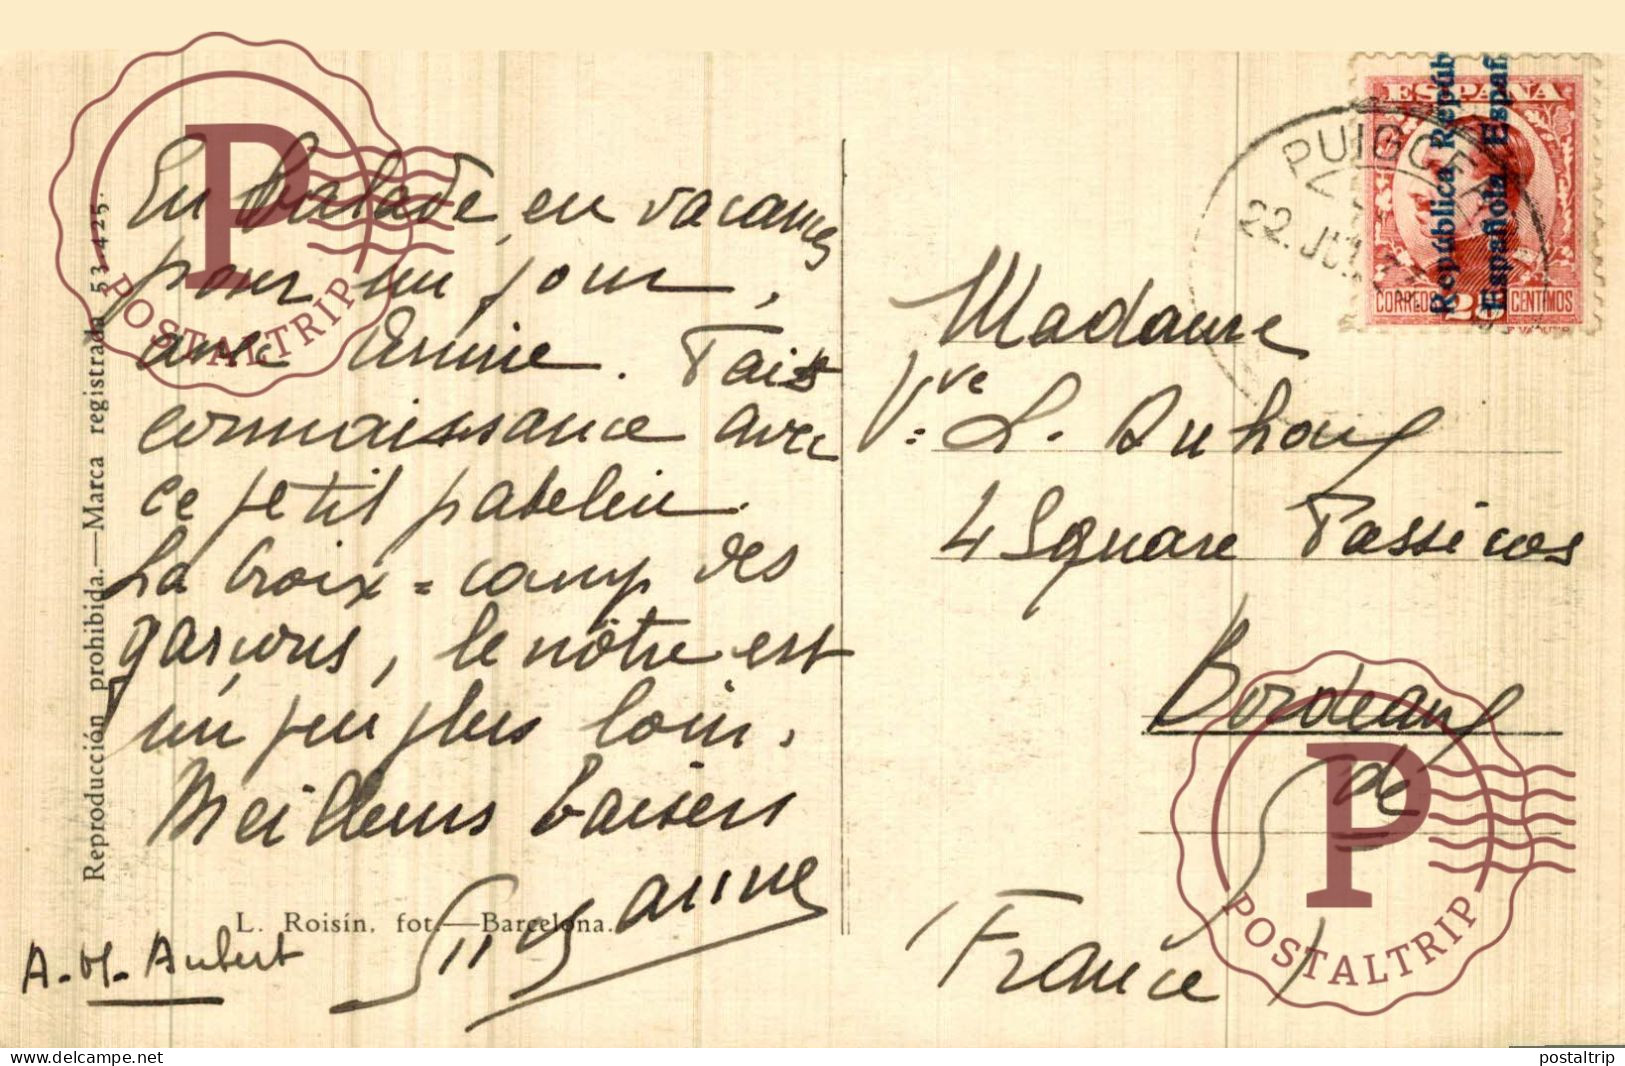 En balade, en vacances
pour un jour,
avec Ermine. Fais
connaissance avec
ce petit patelin.
La Croix = camp des
garçons, le nôtre est
un peu plus loin.
Meilleurs baisers
Suzanne
A.-M. Aubert
L. Roisín, fot.—Barcelona.
Reproducción prohibida.—Marca registrada 53.425.
Madame
Vve L.
4 Square
Bordeaux
de
(France)
ESPAÑA
CORREOS 25 CENTIMOS
República Repúb
Española Españ
PUIGCER
22. JU
POSTALTRIP
POSTALTRIP
delcampe.net
postaltrip